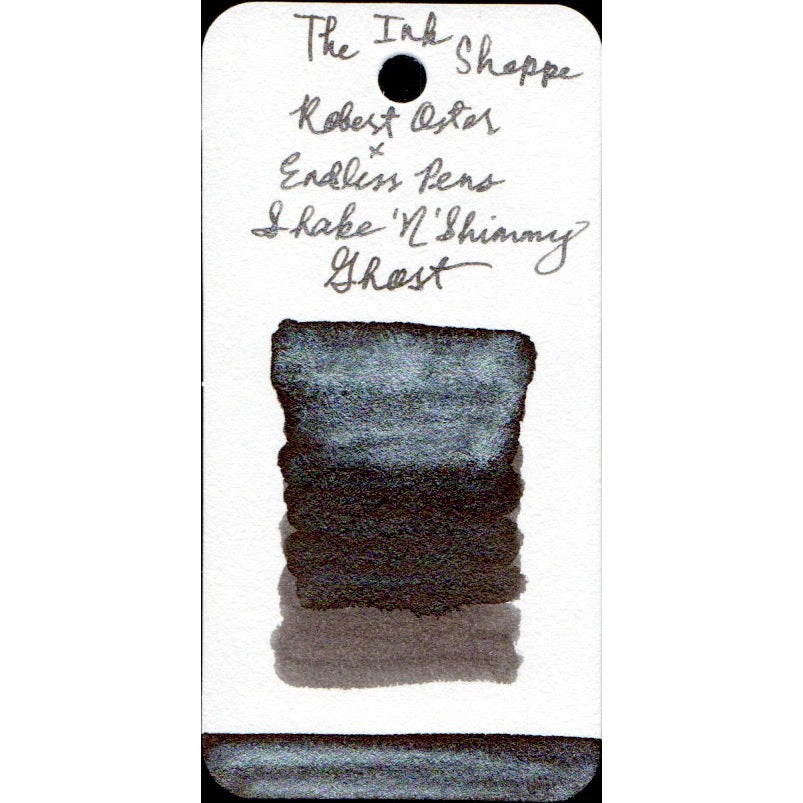 The Ink Shoppe
Robert Oster
x
Endless Pens
Shake 'N' Shimmy
Ghost